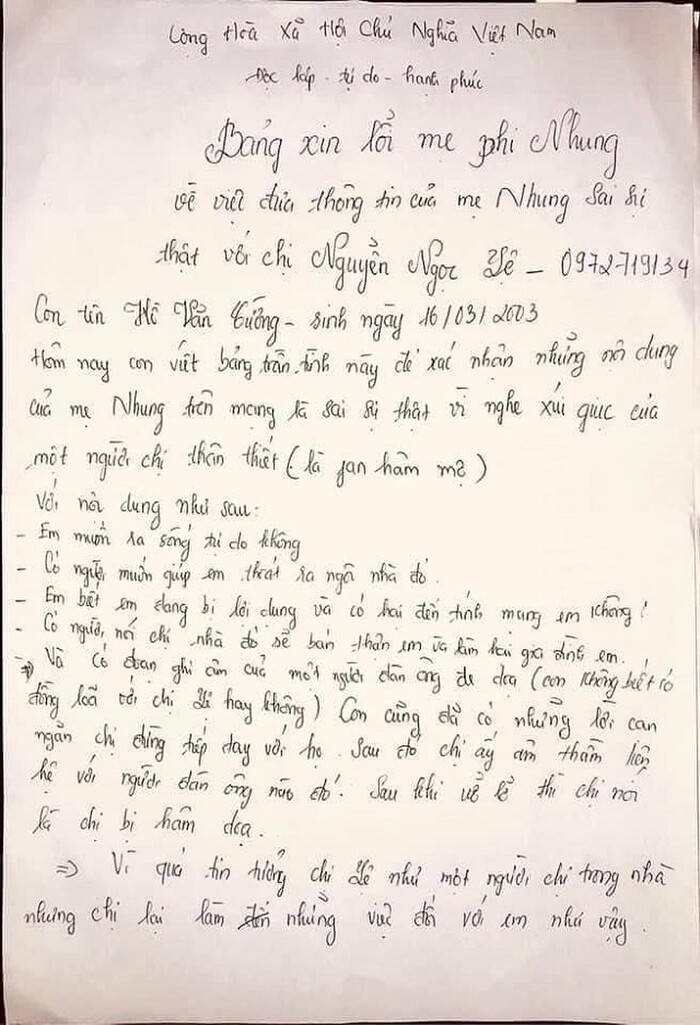 Cộng Hoà Xã Hội Chủ Nghĩa Việt Nam
Độc lập - tự do - hạnh phúc
Bảng xin lỗi mẹ phi Nhung
về việc đưa thông tin của mẹ Nhung sai sự
thật với chị Nguyễn Ngọc Lệ - 0972719134
Con tên Hồ Văn Cường - sinh ngày 16/03/2003
Hôm nay con viết bảng trần tình này để xác nhận những nội dung
của mẹ Nhung trên mạng là sai sự thật vì nghe xúi giục của
một người chị thân thiết (là fan hâm mộ)
Với nội dung như sau:
- Em muốn ra sống tự do không
- Có người muốn giúp em thoát ra ngôi nhà đó.
- Em biết em đang bị lợi dụng và có hại đến tính mạng em không!
- Có người nói chị nhà đó sẽ bán thân em và làm hại gia đình em.
=> Và có đoạn ghi âm của một người đàn ông đe doạ (con không biết có
đồng loã với chị Lệ hay không) Con cũng đã có những lời can
ngăn chị đừng tiếp tay với họ. Sau đó chị ấy âm thầm liên
hệ với người đàn ông nào đó. Sau khi vỡ lẽ thì chị nói
là chị bị hâm doạ.
=> Vì quá tin tưởng chị Lệ như một người chị trong nhà
nhưng chị lại làm những việc đối với em như vậy.